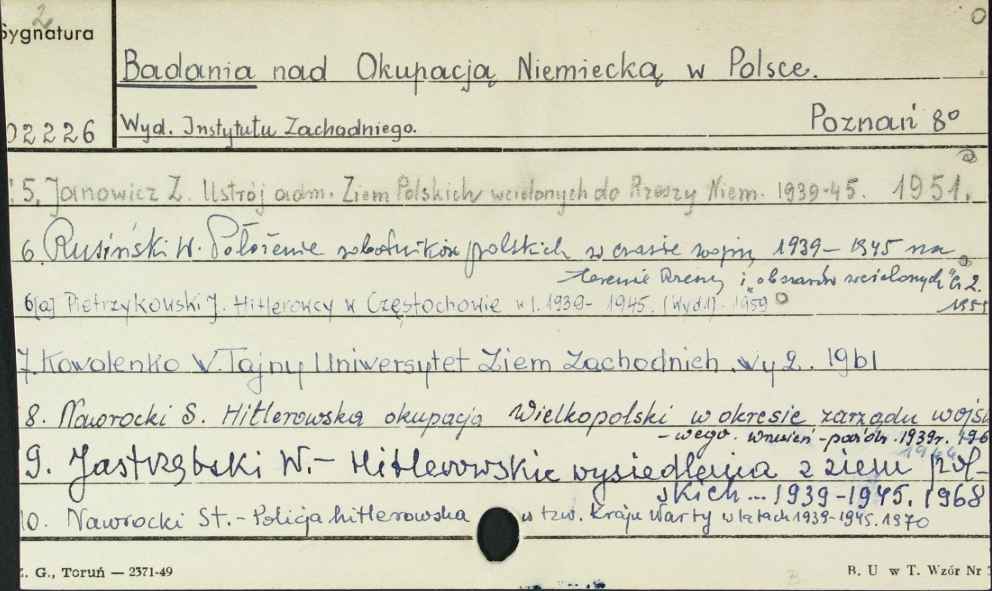 2
Sygnatura
0
Badania nad Okupacją Niemiecką w Polsce.
02226
Wyd. Instytutu Zachodniego.
Poznań 8º
5. Janowicz Z. Ustrój adm. Ziem Polskich wcielonych do Rzeszy Niem. 1939-45. 1951.
6. Rusiński W. Położenie robotników polskich w czasie wojny 1939-1945 na
terenie Rzeszy i "obszarów wcielonych" Cz 2.
1955
6[a] Pietrzykowski J. Hitlerowcy w Częstochowie w l. 1939-1945. (Wyd.1). 1959
7. Kowalenko W. Tajny Uniwersytet Ziem Zachodnich. Wy 2. 1961
8. Nawrocki S. Hitlerowska okupacja Wielkopolski w okresie zarządu wojsk
-wego. wrzesień-paźdz. 1939r. 196
9. Jastrzębski W.- Hitlerowskie wysiedlenia z ziem pol-
skich... 1939-1945. 1968
10. Nawrocki St.- Policja hitlerowska w tzw. Kraju Warty w latach 1939-1945. 1970
Z. G., Toruń — 2371-49
B. U w T. Wzór Nr